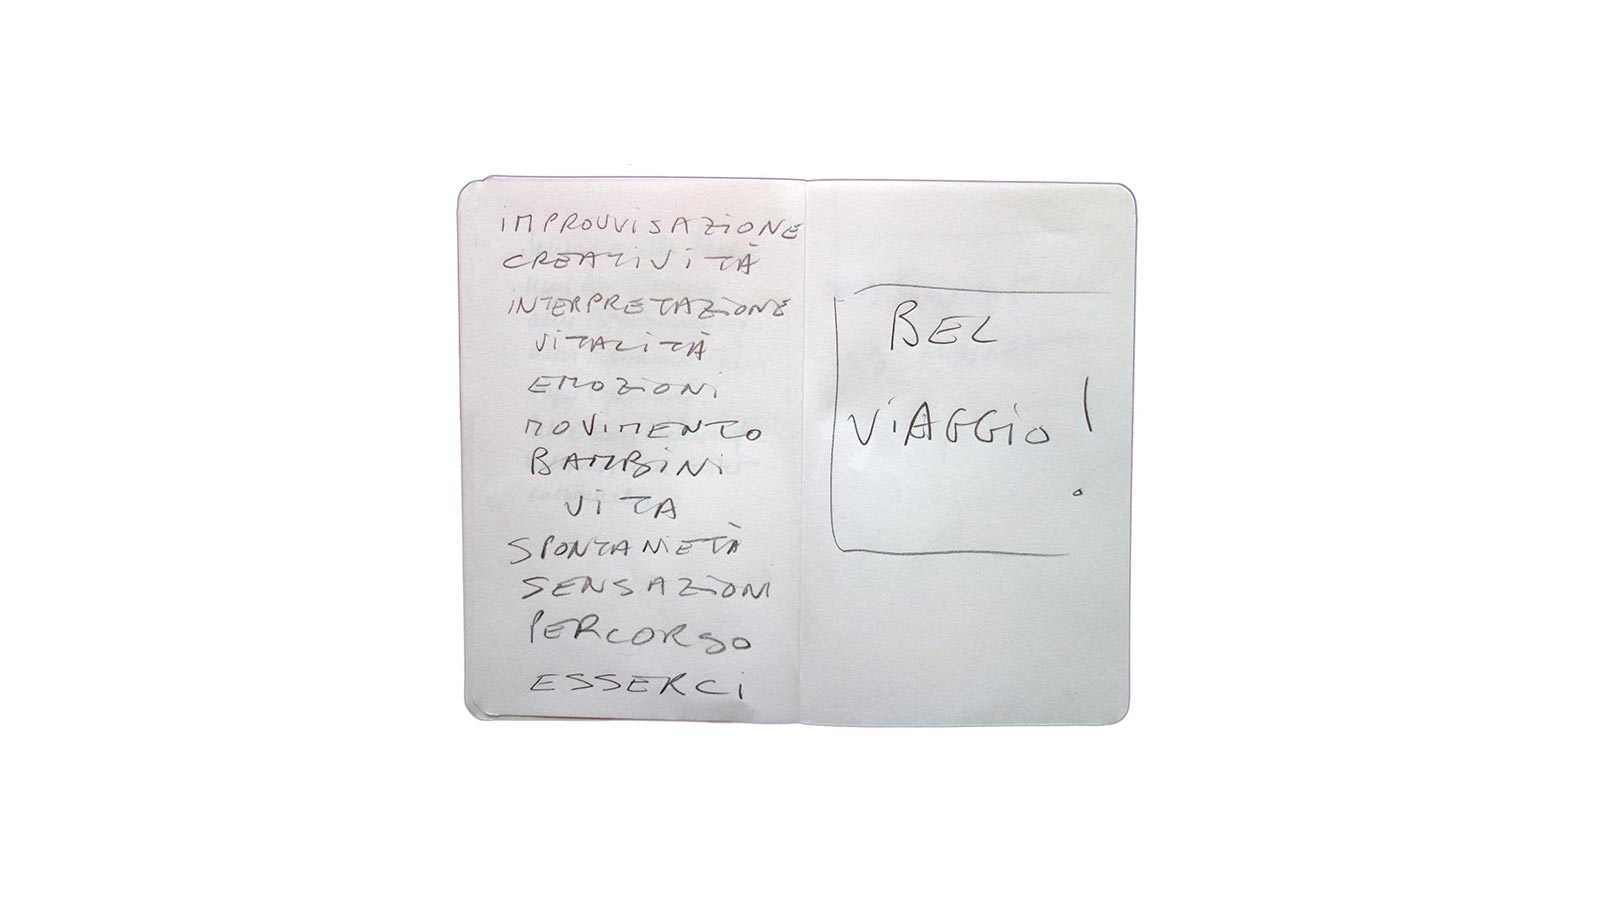 IMPROVVISAZIONE
CREATIVITÀ
INTERPRETAZIONE
VITALITÀ
EMOZIONI
MOVIMENTO
BAMBINI
VITA
SPONTANIETÀ
SENSAZIONI
PERCORSO
ESSERCI
BEL
VIAGGIO!